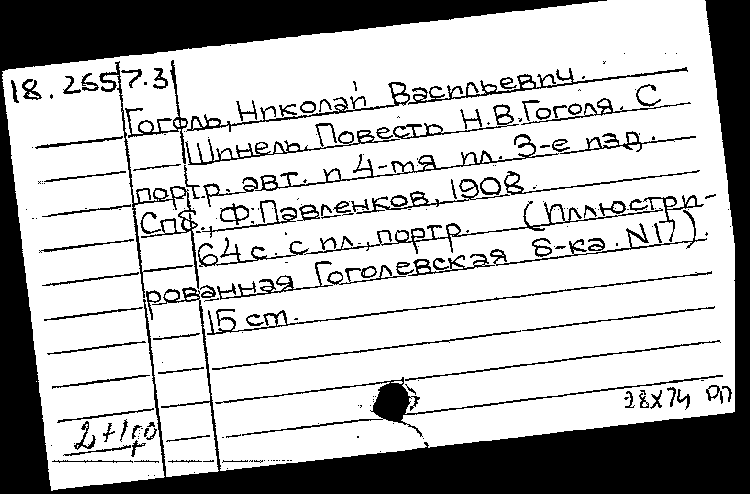 18.265 7.3
Гоголь, Николай Васильевич.
Шинель. Повесть Н.В.Гоголя. С
портр. авт. и 4-мя ил. 3-е изд.
Спб., Ф.Павленков, 1908.
64 с. с ил., портр. (Иллюстри-
рованная Гоголевская б-ка. N17).
15 см.
28X74